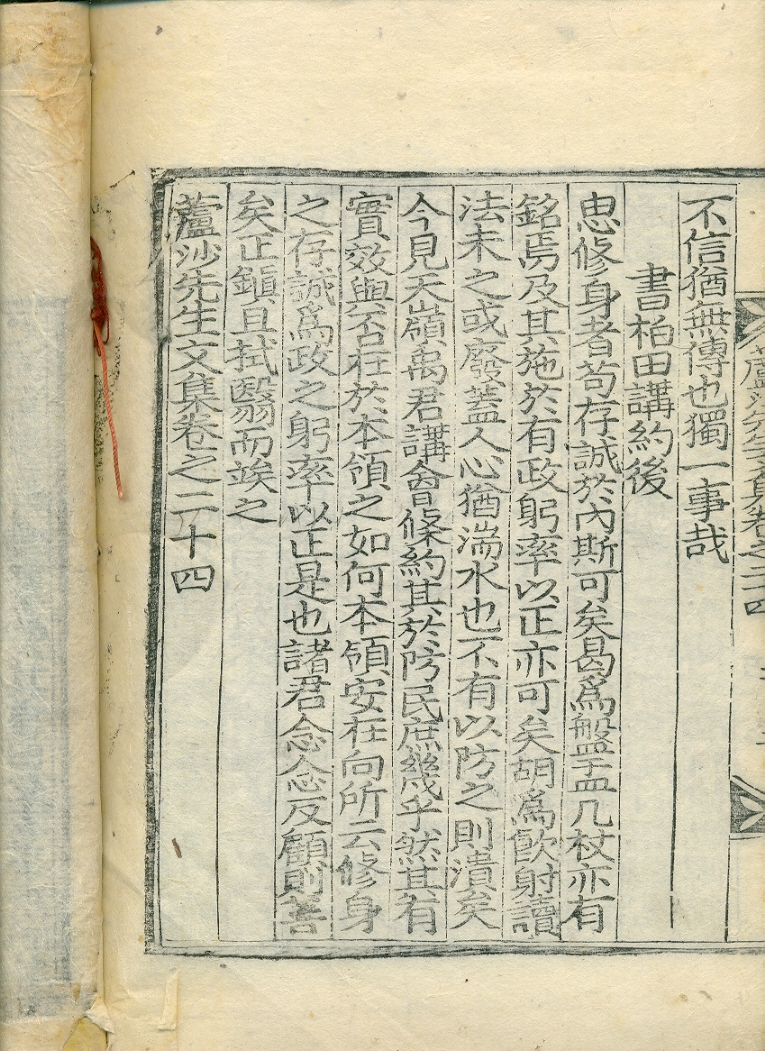 蘆沙先生文集卷之二十四
不信猶無傳也獨一事哉
書柏田講約後
思修身者苟存誠於內斯可矣曷爲盤盂几杖亦有
銘焉及其施於有政躬率以正亦可矣胡爲飮射讀
法未之或廢蓋人心猶湍水也不有以防之則潰矣
今見天嶺禹君講會條約其於防民庶幾乎然其有
實效與否在於本領之如何本領安在向所云修身
之存誠爲政之躬率以正是也諸君念念反顧則善
矣正鎭且拭翳而竢之
蘆沙先生文集卷之二十四